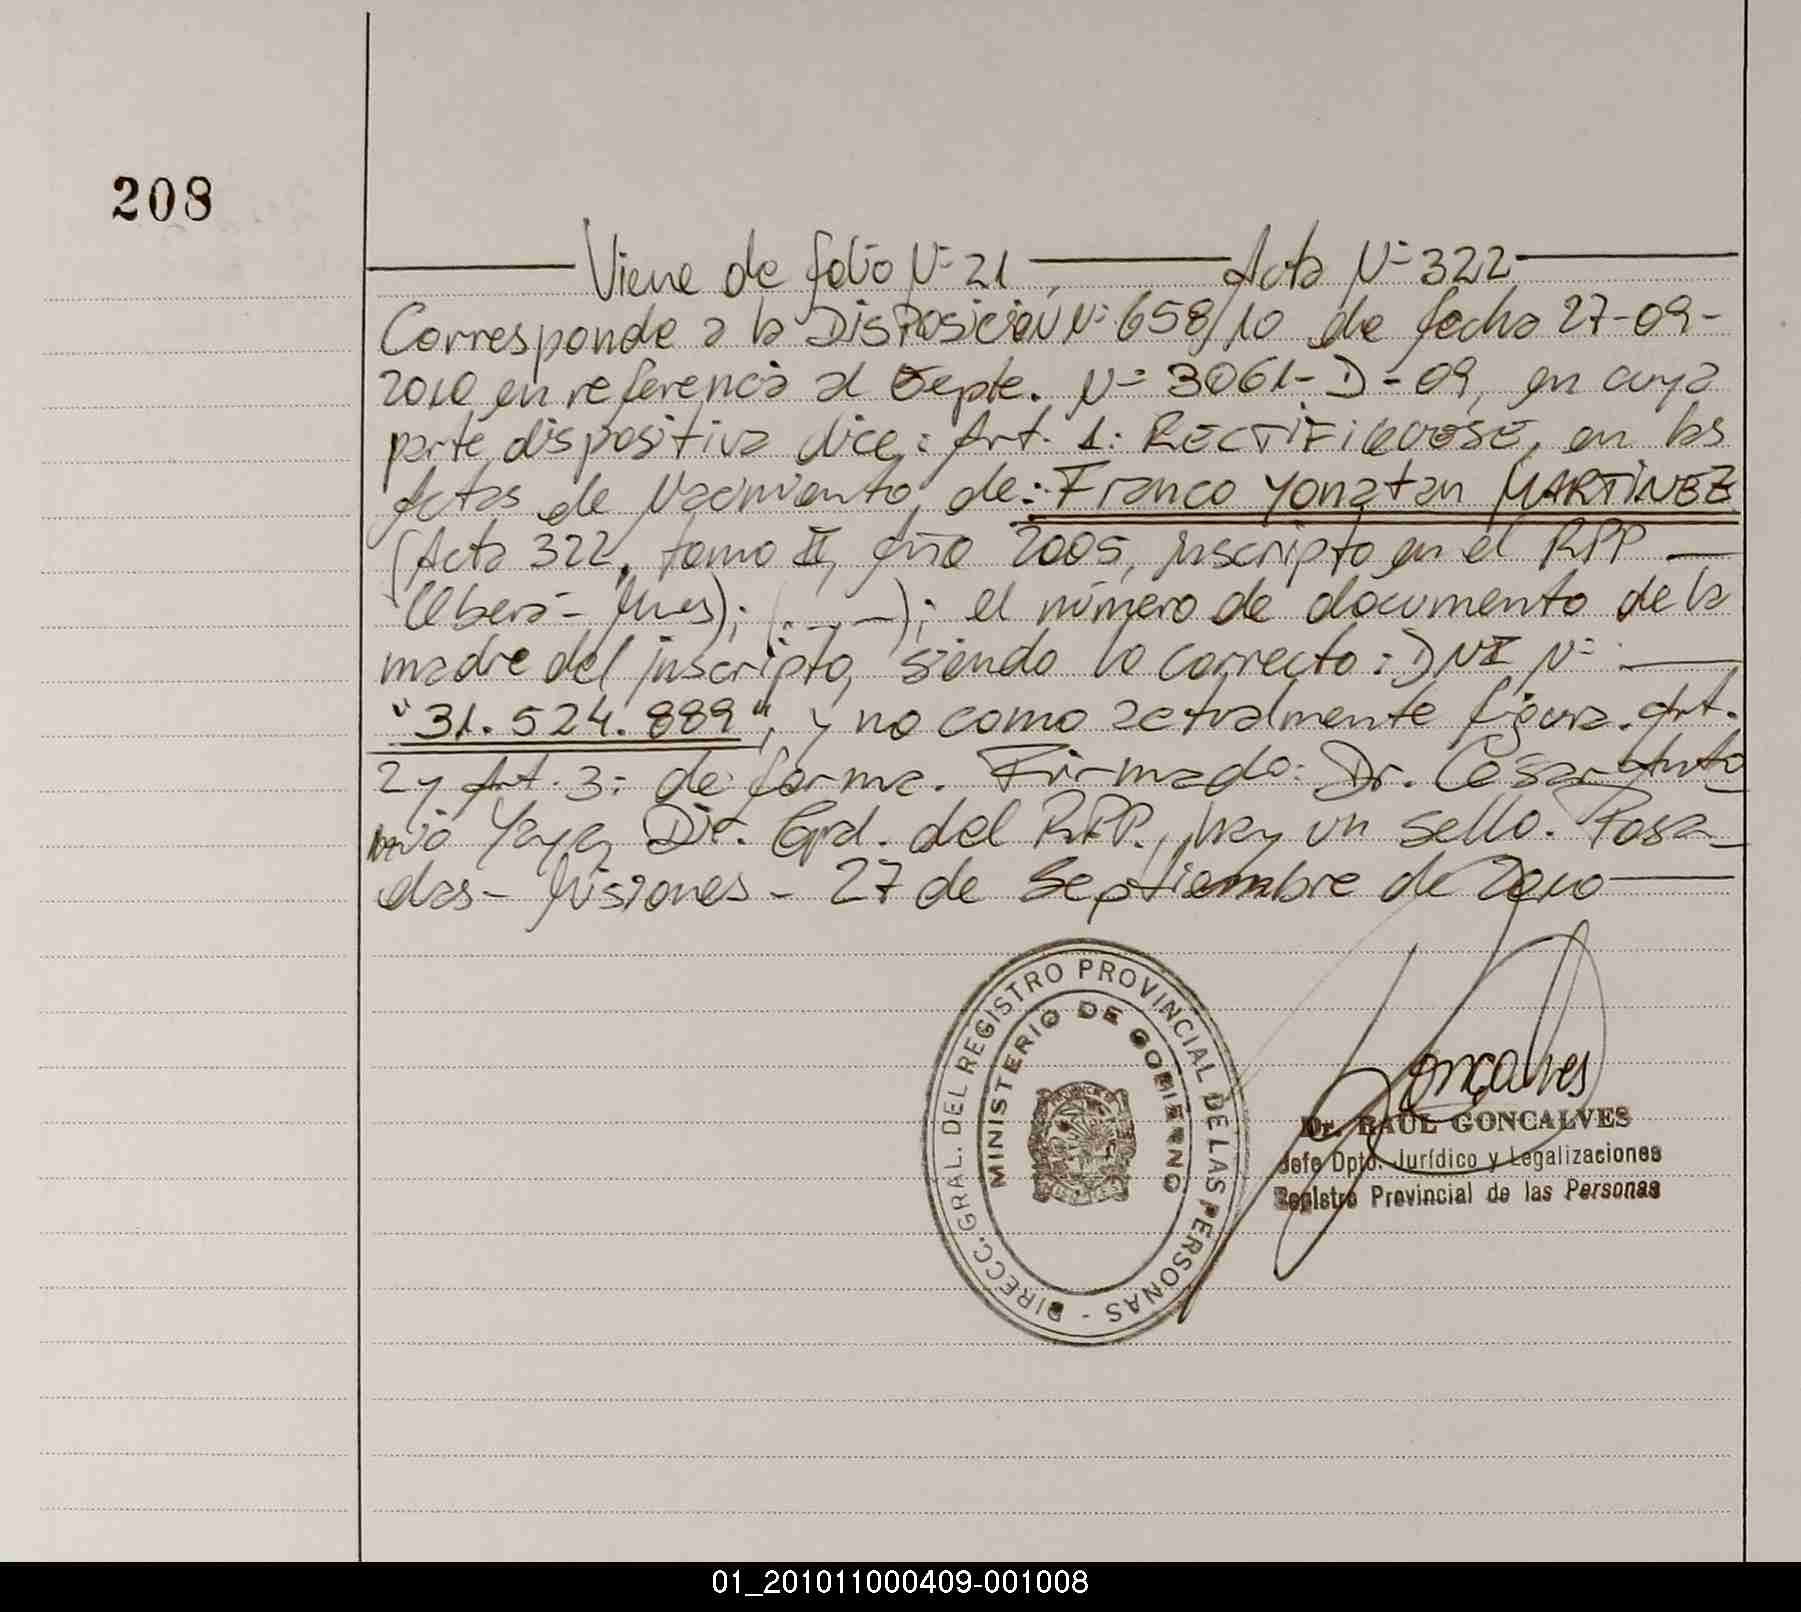 208
Viene de folio Nº 21, Acta Nº 322
Corresponde a la DISPOSICIÓN Nº 658/10 de fecha 27-09-
2010 en referencia al Expte. Nº 3061-D-09, en cuya
parte dispositiva dice: Art. 1: RECTIFIQUESE, en las
Actas de Nacimiento de: Franco Yonatan MARTINEZ
(Acta 322, tomo II, Año 2005, inscripto en el RPP —
Oberá - Mnes); (. — . —); el número de documento de la
madre del inscripto, siendo lo correcto: DNI Nº: —
"31.524.889", y no como actualmente figura. Art.
2 y Art. 3: de forma. Firmado: Dr. César Anto
nio Yaya, Dir. Gral. del RPP., hay un sello. Posa-
das - Misiones - 27 de Septiembre de 2010 —
DIRECC. GRAL. DEL REGISTRO PROVINCIAL DE LAS PERSONAS -
MINISTERIO DE GOBIERNO
Goncalves
Dr. RAUL GONCALVES
Jefe Dpto. Jurídico y Legalizaciones
Registro Provincial de las Personas
01_201011000409-001008